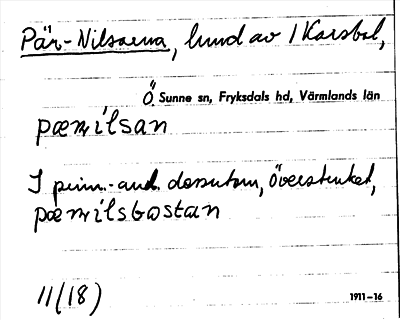 Pär-Nilsarna, lund av 1 Karsbol,
Ö. Sunne sn, Fryksdals hd, Värmlands län
pœnilsan
I prim.-ant. dessutom, överstruket,
pœnilsbostan
11(18)
1911–16